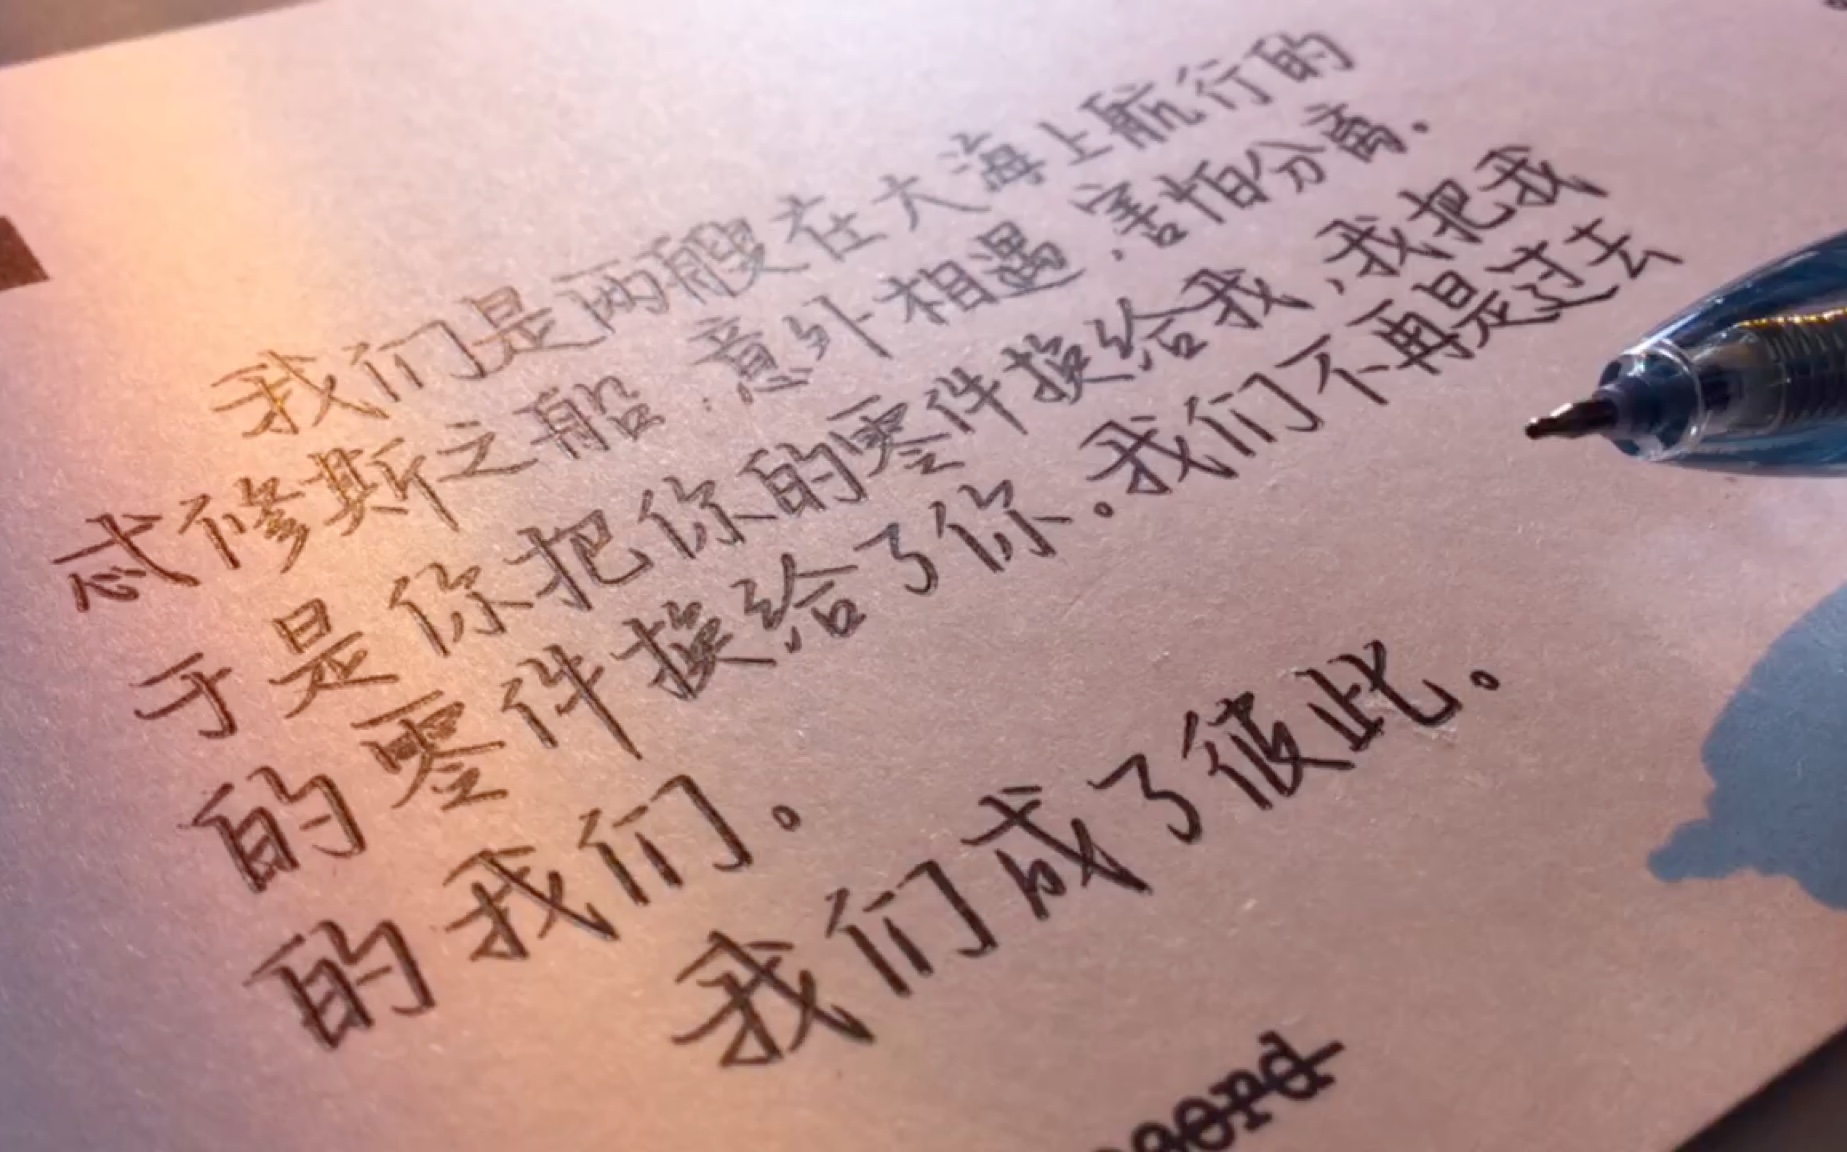 我们是两艘在大海上航行的
忒修斯之船,意外相遇,害怕分离.
于是你把你的零件换给我,我把我
的零件换给了你.我们不再是过去
的我们。
我们成了彼此。